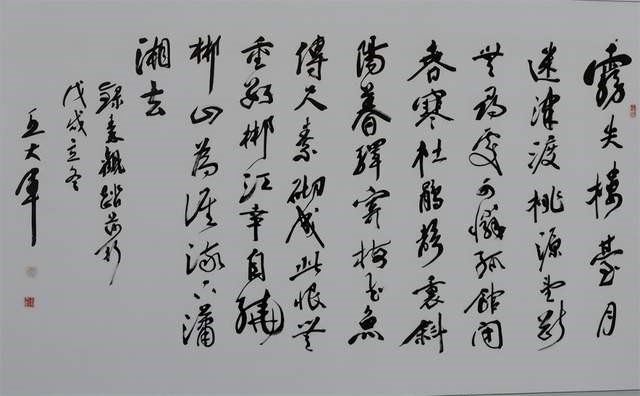 霧失樓臺月
迷津渡桃源望斷
無尋處可憐孤館閉
春寒杜鵑聲裏斜
陽暮驛寄梅花魚
傳尺素砌成此恨無
重數郴江幸自繞
郴山為誰流下瀟
湘去
錄秦觀踏莎行
戊戌立冬
王大軍